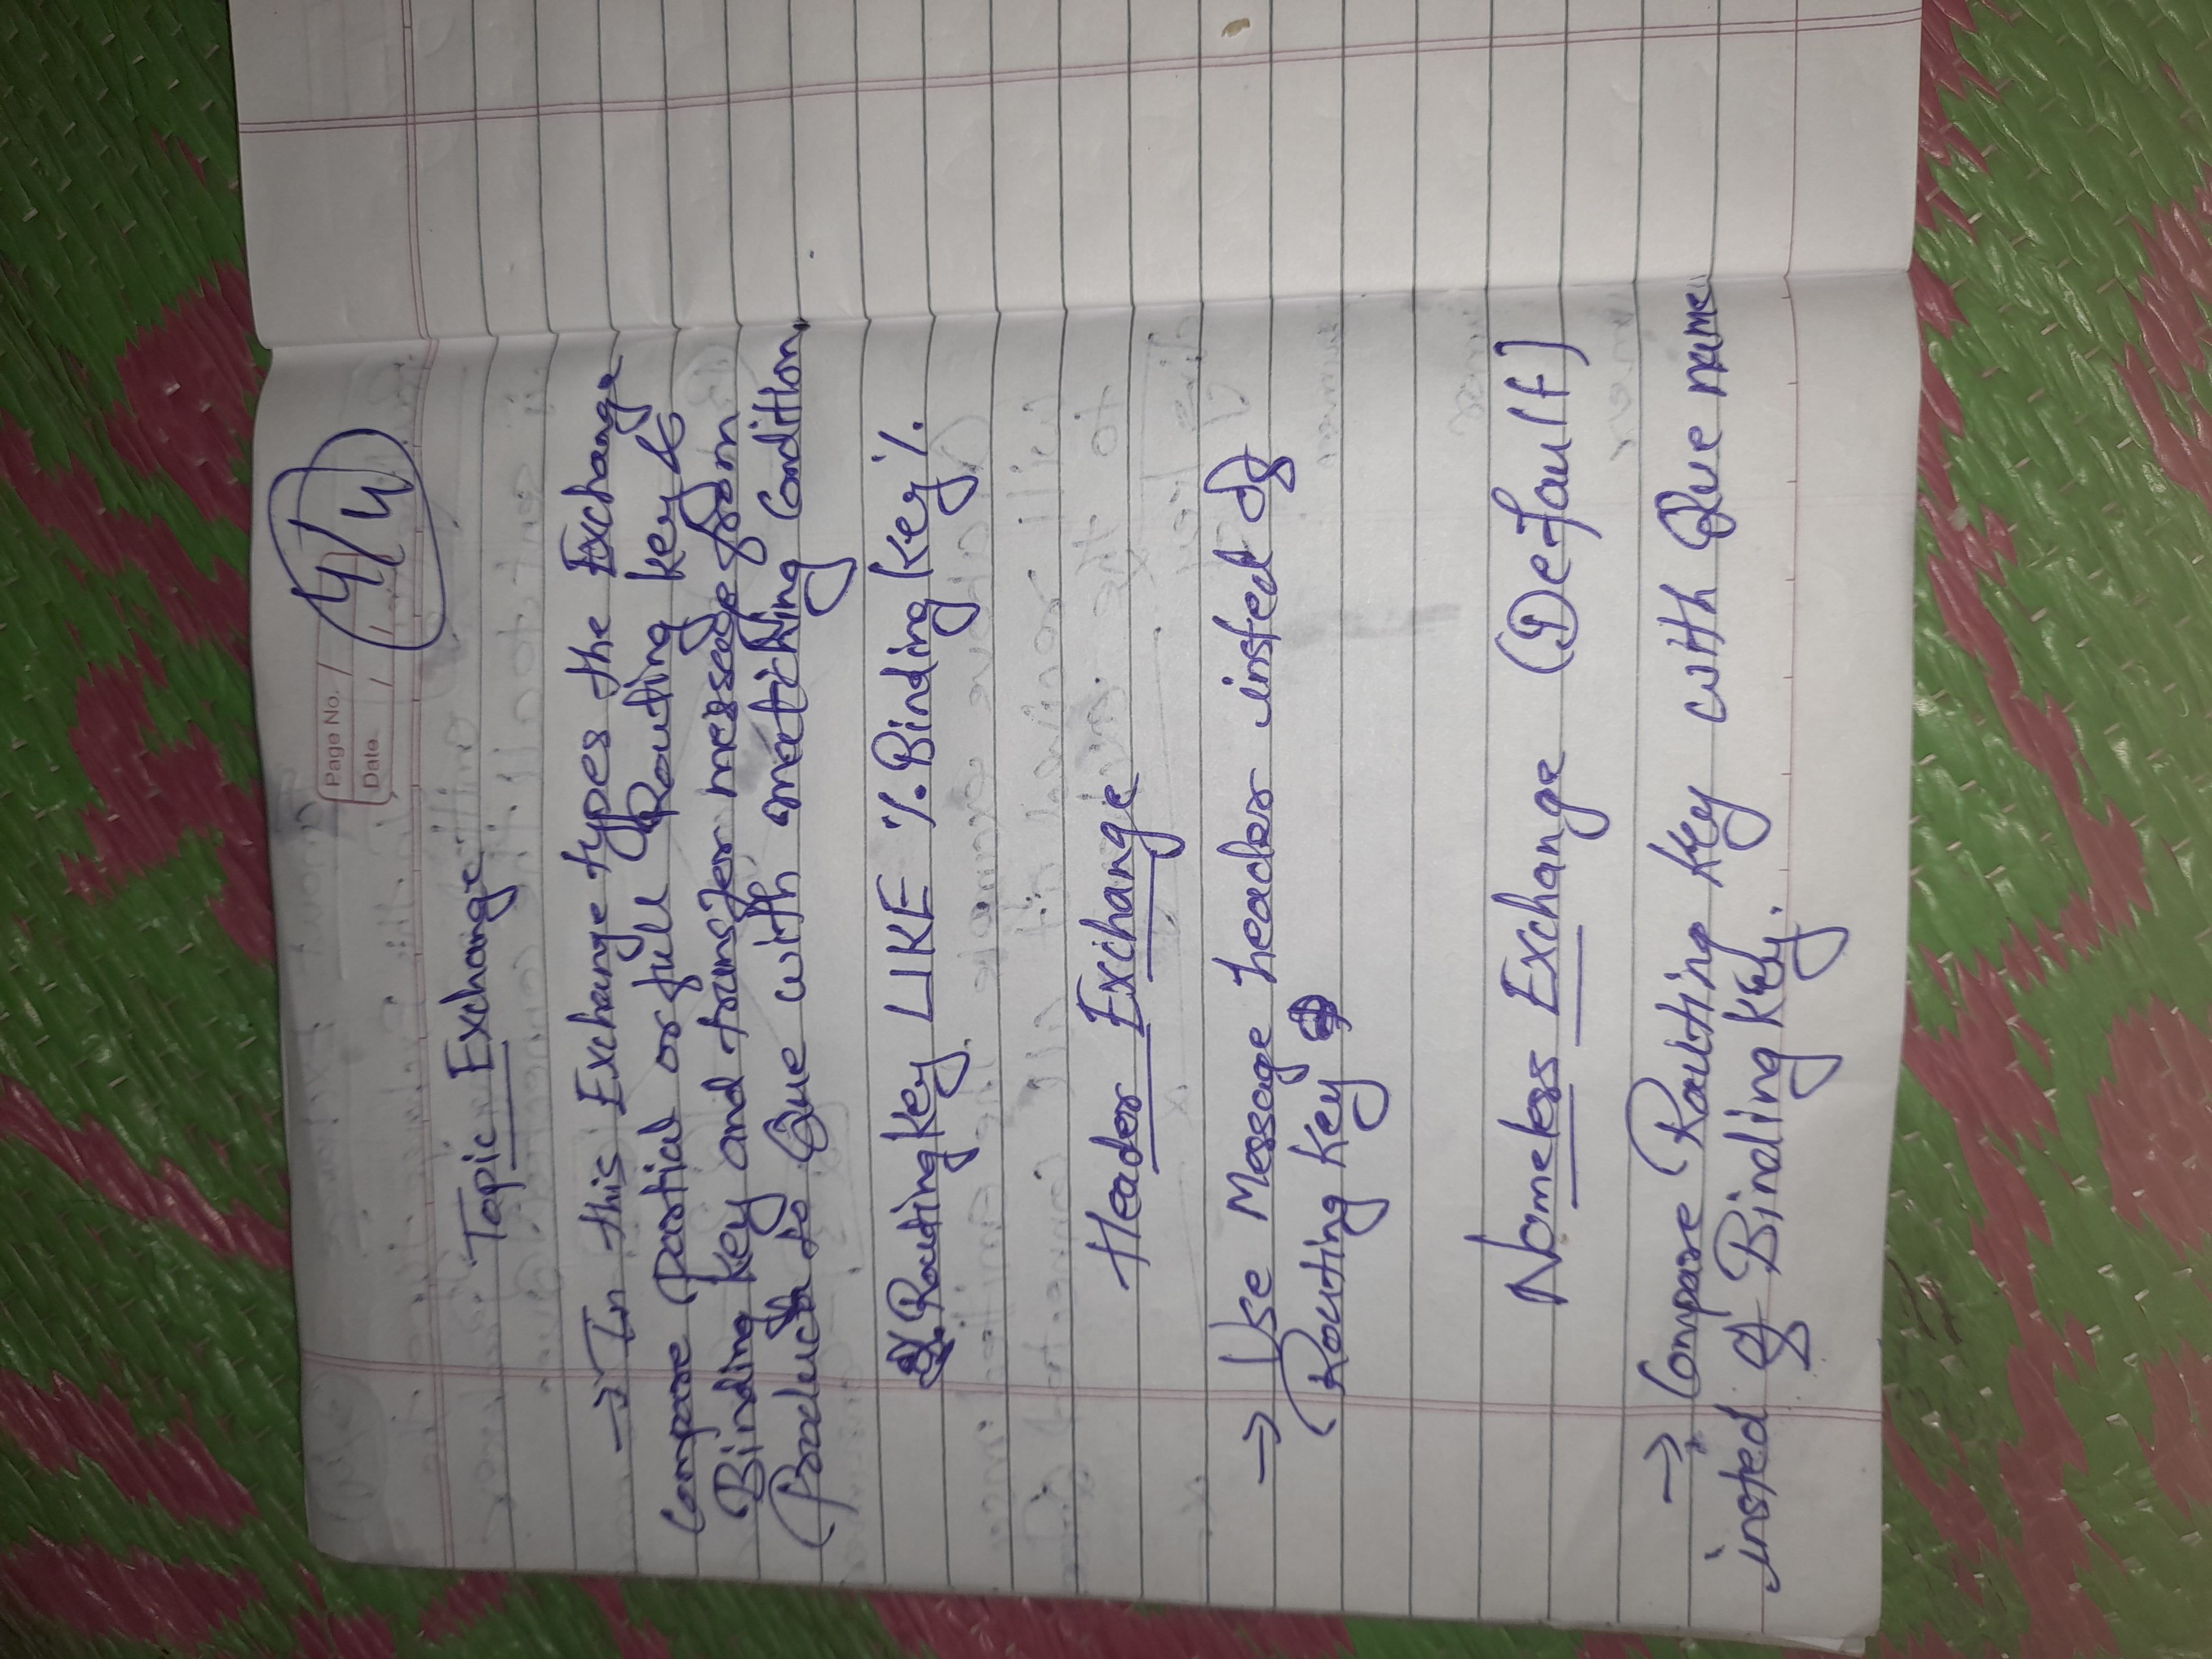 Page No.
Date
4/4
Topic Exchange
→ In this Exchange types the Exchange
Compare partial or full Routing key &
Binding key and transfer message from
to Que with matiching Condition.
Routing key LIKE % Binding key %
Header Exchange
→ Use Message header insted of
Routing key
Nameless Exchange (Default)
→ Compare Routing key with Que name
insted of Binding key.